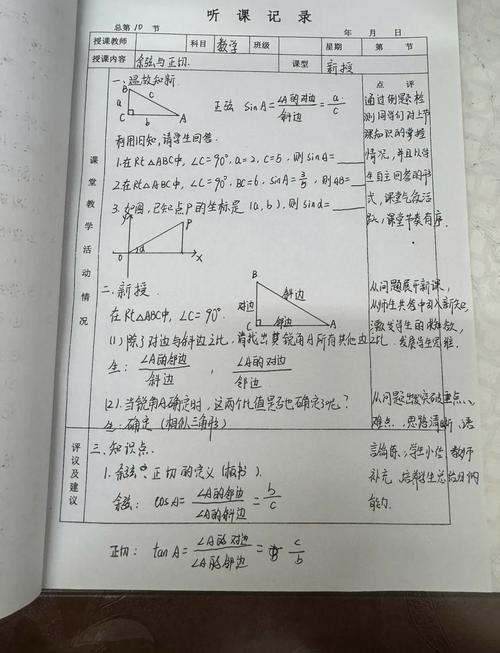 听课记录
总第10节 年 月 日
授课教师 科目 数学 班级 星期 第 节
授课内容 余弦与正切. 课型 新授
课堂教学活动情况
点评
一、温故知新
B a c C b A
正弦 sinA = ∠A的对边/斜边 = a/c
利用旧知,请学生回答.
1.在Rt△ABC中,∠C=90°,a=2,c=5,则sinA=____
2.在Rt△ABC中,∠C=90°,BC=6,sinA=3/5,则AB=____
3.如图,已知点P的坐标是(a,b),则sinα=____
y P 0 α x
二、新授
在Rt△ABC中,∠C=90°.
B 对边 斜边 C 邻边 A
(1)除了对边与斜边之比,请找出其锐角A所有其他边之比.
生: ∠A的邻边/斜边, ∠A的对边/邻边
(2).当锐角A确定时,这两个比值是否也确定了呢?
生:确定(相似三角形)
通过例题检
测同学们对上节
课知识的掌握
情况,并且以学
生自主回答的形
式,课堂气氛活
跃,课堂节奏有序.
从问题展开新课,
从师生共答中引入新知,
激发学生的求知欲,
发展学生思维.
从问题出发突破重点、
难点,思路清晰,语
言,学生小结,教师
补充,培养学生总结归纳
能力.
评议及建议
三、知识点.
1.余弦、正切的定义(板书).
余弦: cosA = ∠A的邻边/∠A的斜边 = b/c
正切: tanA = ∠A的对边/∠A的邻边 = c/b